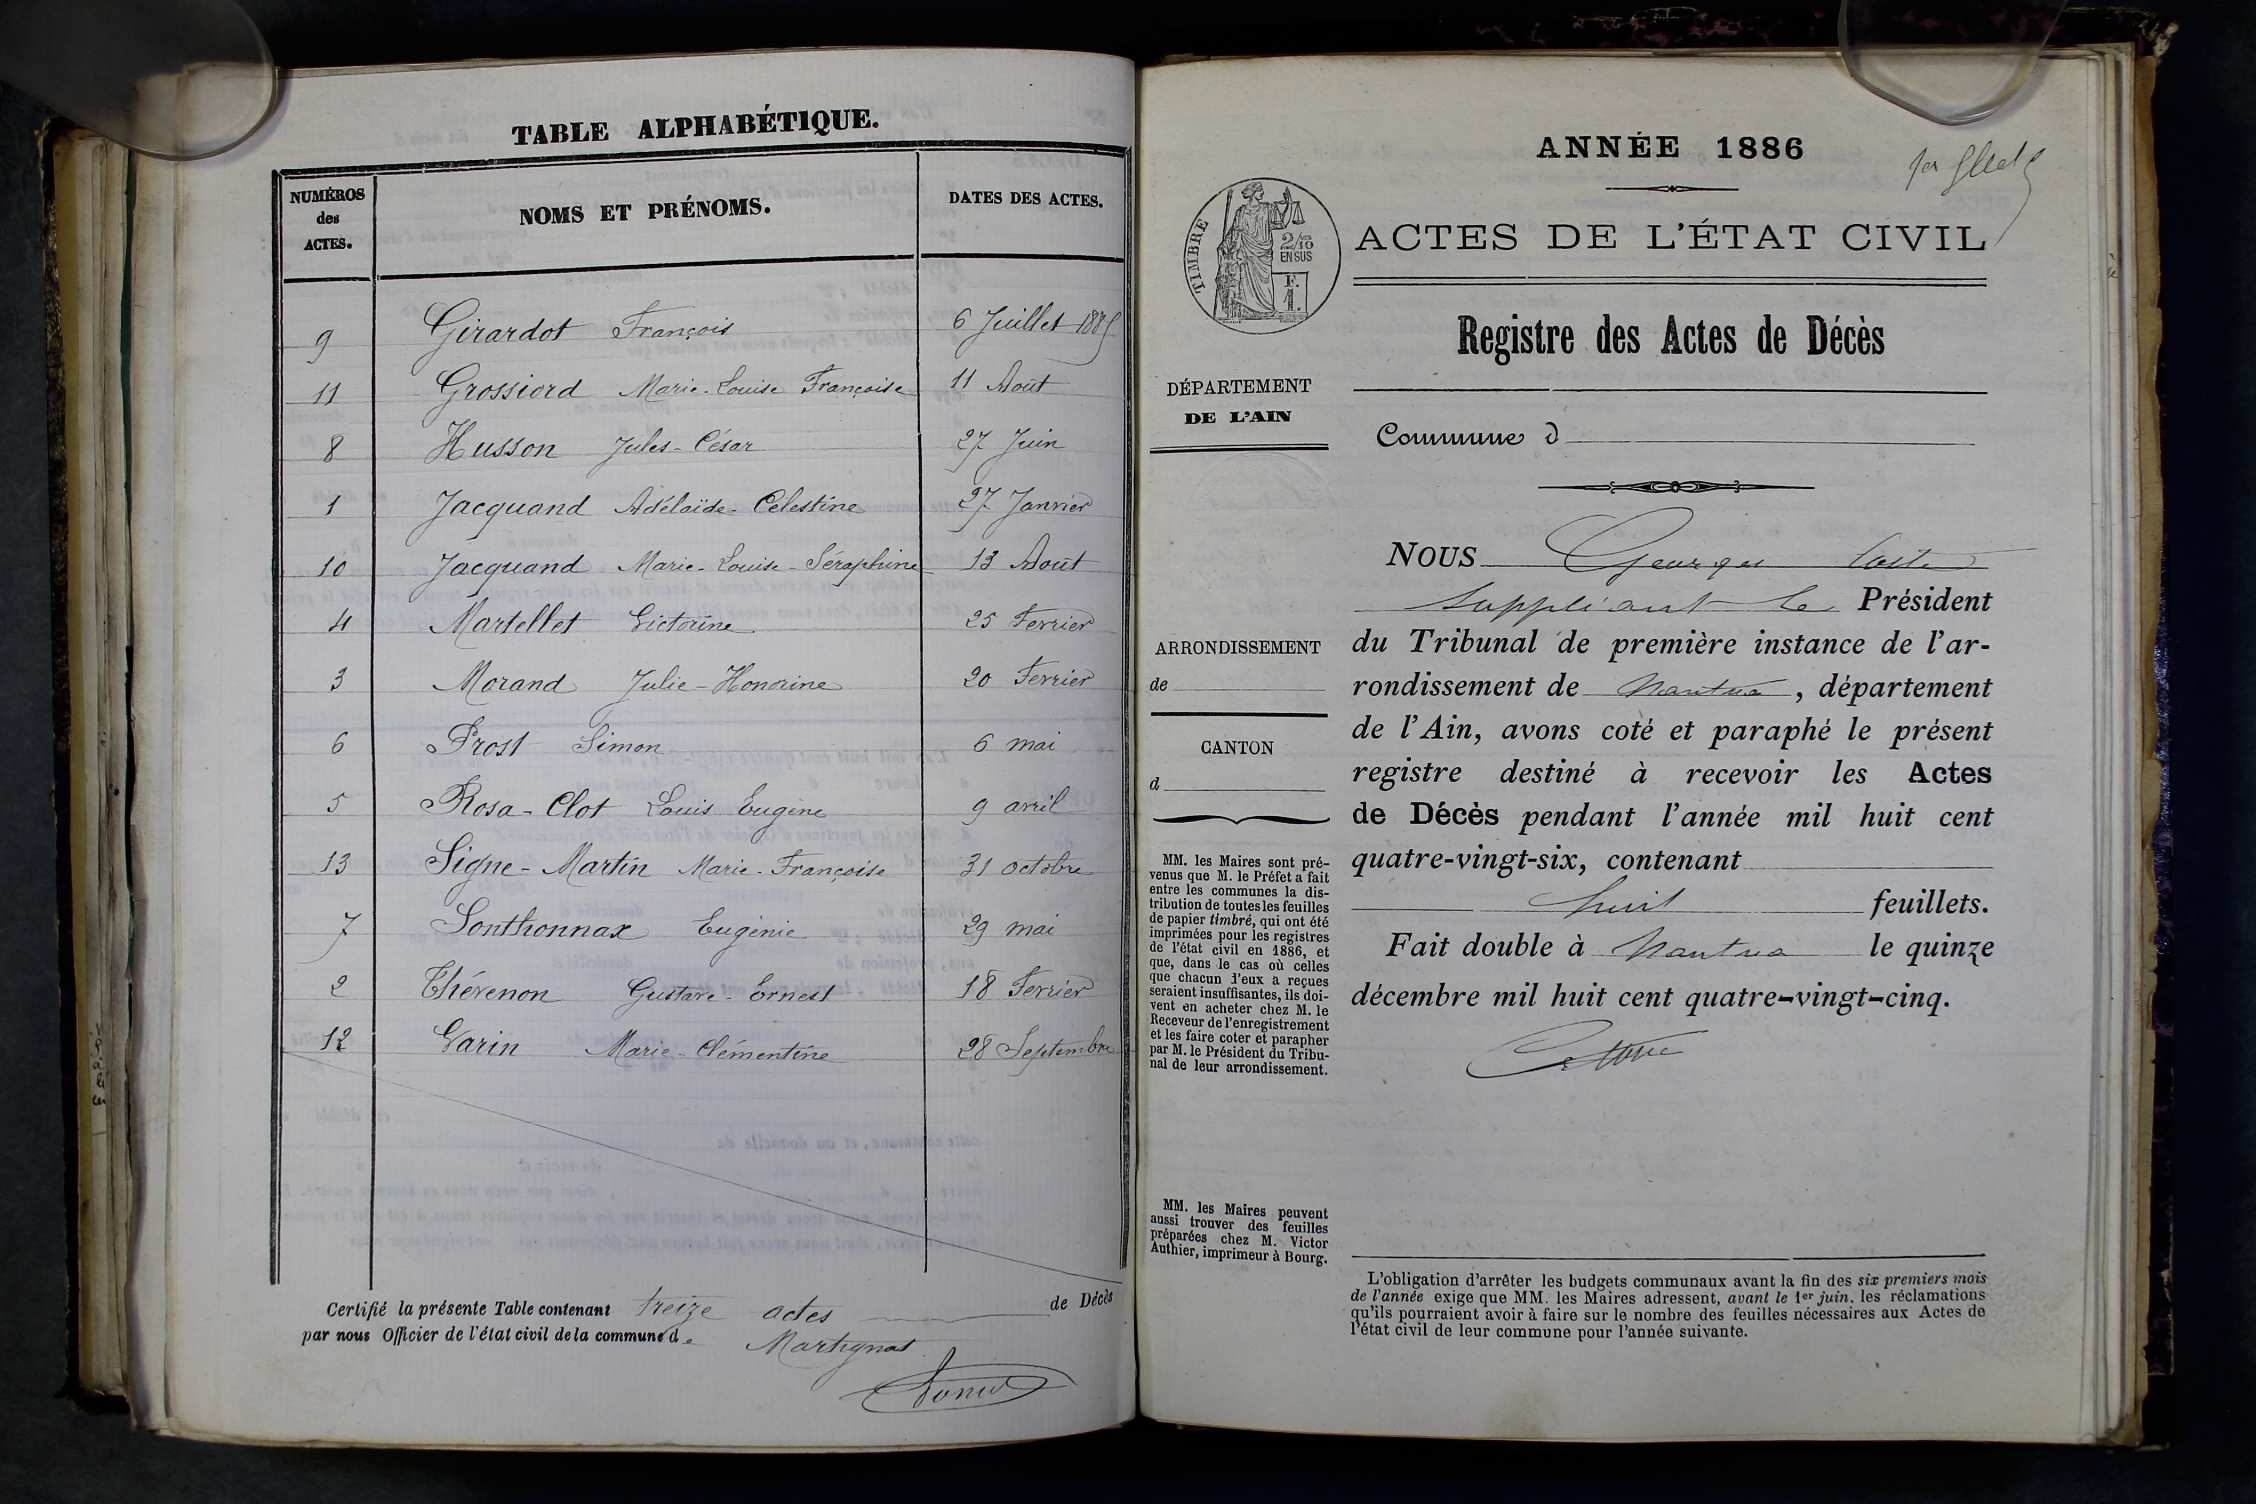 TABLE ALPHABÉTIQUE.
NUMÉROS
des
ACTES.
NOMS ET PRÉNOMS.
DATES DES ACTES.
9 Girardot François 6 Juillet 1885
11 Grossiord Marie-Louise Françoise 11 Août
8 Husson Jules-César 27 Juin
1 Jacquand Adélaïde-Célestine 27 Janvier
10 Jacquand Marie-Louise-Séraphine 13 Août
4 Martellet Victorine 25 Fevrier
3 Morand Julie-Honorine 20 Fevrier
6 Prost Simon 6 mai
5 Rosa-Clot Louis Eugène 9 avril
13 Signe-Martin Marie-Françoise 31 octobre
7 Sonthonnax Eugénie 29 mai
2 Thévenon Gustave-Ernest 18 Fevrier
12 Varin Marie-Clémentine 28 Septembre
Certifié la présente Table contenant treize actes de Décès
par nous Officier de l'état civil de la commune de Martignat
ANNÉE 1886
TIMBRE
2/10
EN SUS
F.
1.
ACTES DE L'ÉTAT CIVIL
Registre des Actes de Décès
DÉPARTEMENT
DE L'AIN
Commune d
NOUS Georges
suppléant le Président
du Tribunal de première instance de l'ar-
rondissement de Nantua, département
de l'Ain, avons coté et paraphé le présent
registre destiné à recevoir les Actes
de Décès pendant l'année mil huit cent
quatre-vingt-six, contenant
huit feuillets.
Fait double à Nantua le quinze
décembre mil huit cent quatre-vingt-cinq.
ARRONDISSEMENT
de
CANTON
d
MM. les Maires sont pré-
venus que M. le Préfet a fait
entre les communes la dis-
tribution de toutes les feuilles
de papier timbré, qui ont été
imprimées pour les registres
de l'état civil en 1886, et
que, dans le cas où celles
que chacun d'eux a reçues
seraient insuffisantes, ils doi-
vent en acheter chez M. le
Receveur de l'enregistrement
et les faire coter et parapher
par M. le Président du Tribu-
nal de leur arrondissement.
MM. les Maires peuvent
aussi trouver des feuilles
préparées chez M. Victor
Authier, imprimeur à Bourg.
L'obligation d'arrêter les budgets communaux avant la fin des six premiers mois
de l'année exige que MM. les Maires adressent, avant le 1er juin, les réclamations
qu'ils pourraient avoir à faire sur le nombre des feuilles nécessaires aux Actes de
l'état civil de leur commune pour l'année suivante.